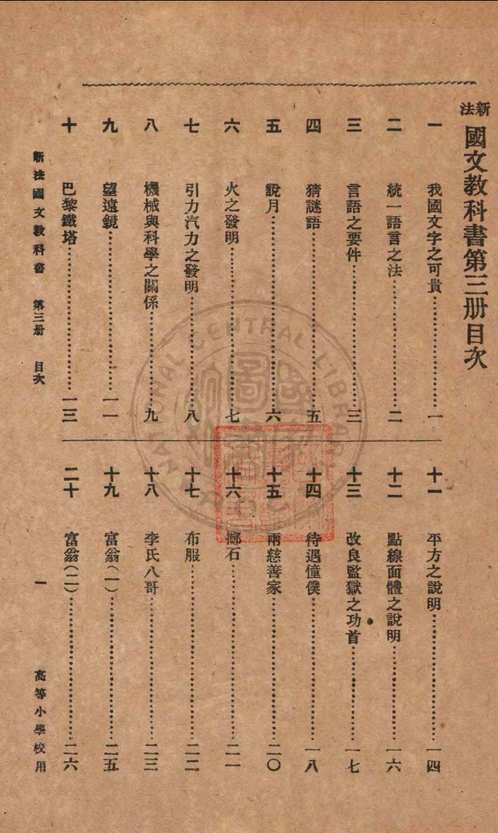 新法國文教科書第三册目次
一 我國文字之可貴 一
二 統一語言之法 二
三 言語之要件 三
四 猜謎語 五
五 說月 六
六 火之發明 七
七 引力汽力之發明 八
八 機械與科學之關係 九
九 望遠鏡 一一
十 巴黎鐵塔 一三
十一 平方之說明 一四
十二 點線面體之說明 一六
十三 改良監獄之功首 一七
十四 待遇僮僕 一八
十五 兩慈善家 二〇
十六 擲石 二一
十七 布服 二二
十八 李氏八哥 二三
十九 富翁(一) 二五
二十 富翁(二) 二六
新法國文教科書 第三册 目次 一 高等小學校用
NATIONAL CENTRAL LIBRARY